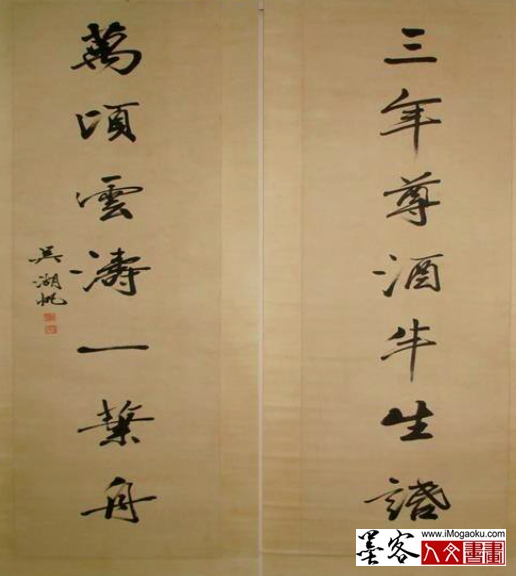 三年尊酒半生話
萬頃雲濤一葉舟
吳湖帆
墨客
www.iMogaoku.com
人文書畫